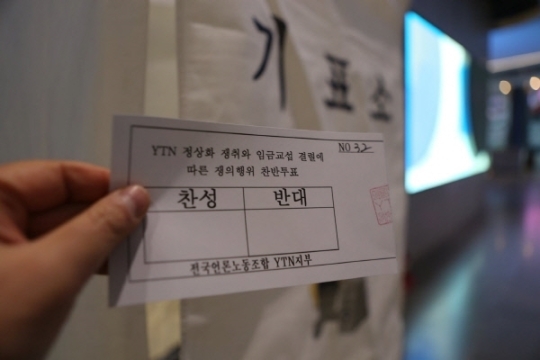 기표소
NO 32
YTN 정상화 쟁취와 임금교섭 결렬에
따른 쟁의행위 찬반투표
찬성 반대
전국언론노동조합 YTN지부